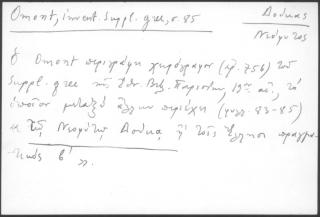 Omont, invent. suppl. grec, σ. 85
Δούκας
Νεόφυτος
Ὁ Omont περιγράφει χειρόγραφον (ἀρ. 756) τοῦ
suppl. grec τῆς Ἐθν. Βιβ. Παρισίων, 19ου αἰ., τὸ
ὁποῖον μεταξὺ ἄλλων περιέχει (φυλλ. 83-85)
Νεοφύτου Δούκα, ἡ τοῖς Ἕλλησι πραγμα-
β΄ ».